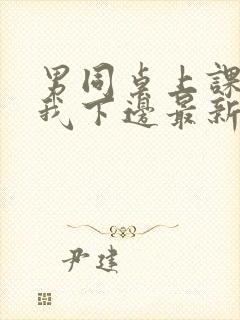 男同桌上課
我下邊最新
尹建